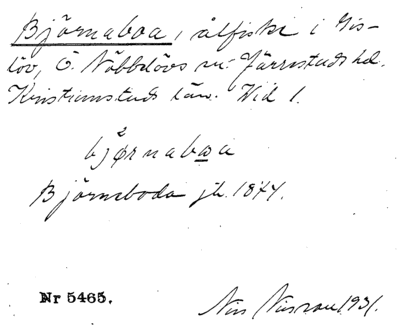 Björnaboa, ålfiske i Gis-
löv, Ö. Nöbbelövs sn. Järrestads hd.
Kristianstads län. Wid 1.
bjǿrnaboa
Björneboda jb. 1874.
Nr 5465.
Nils 1931.